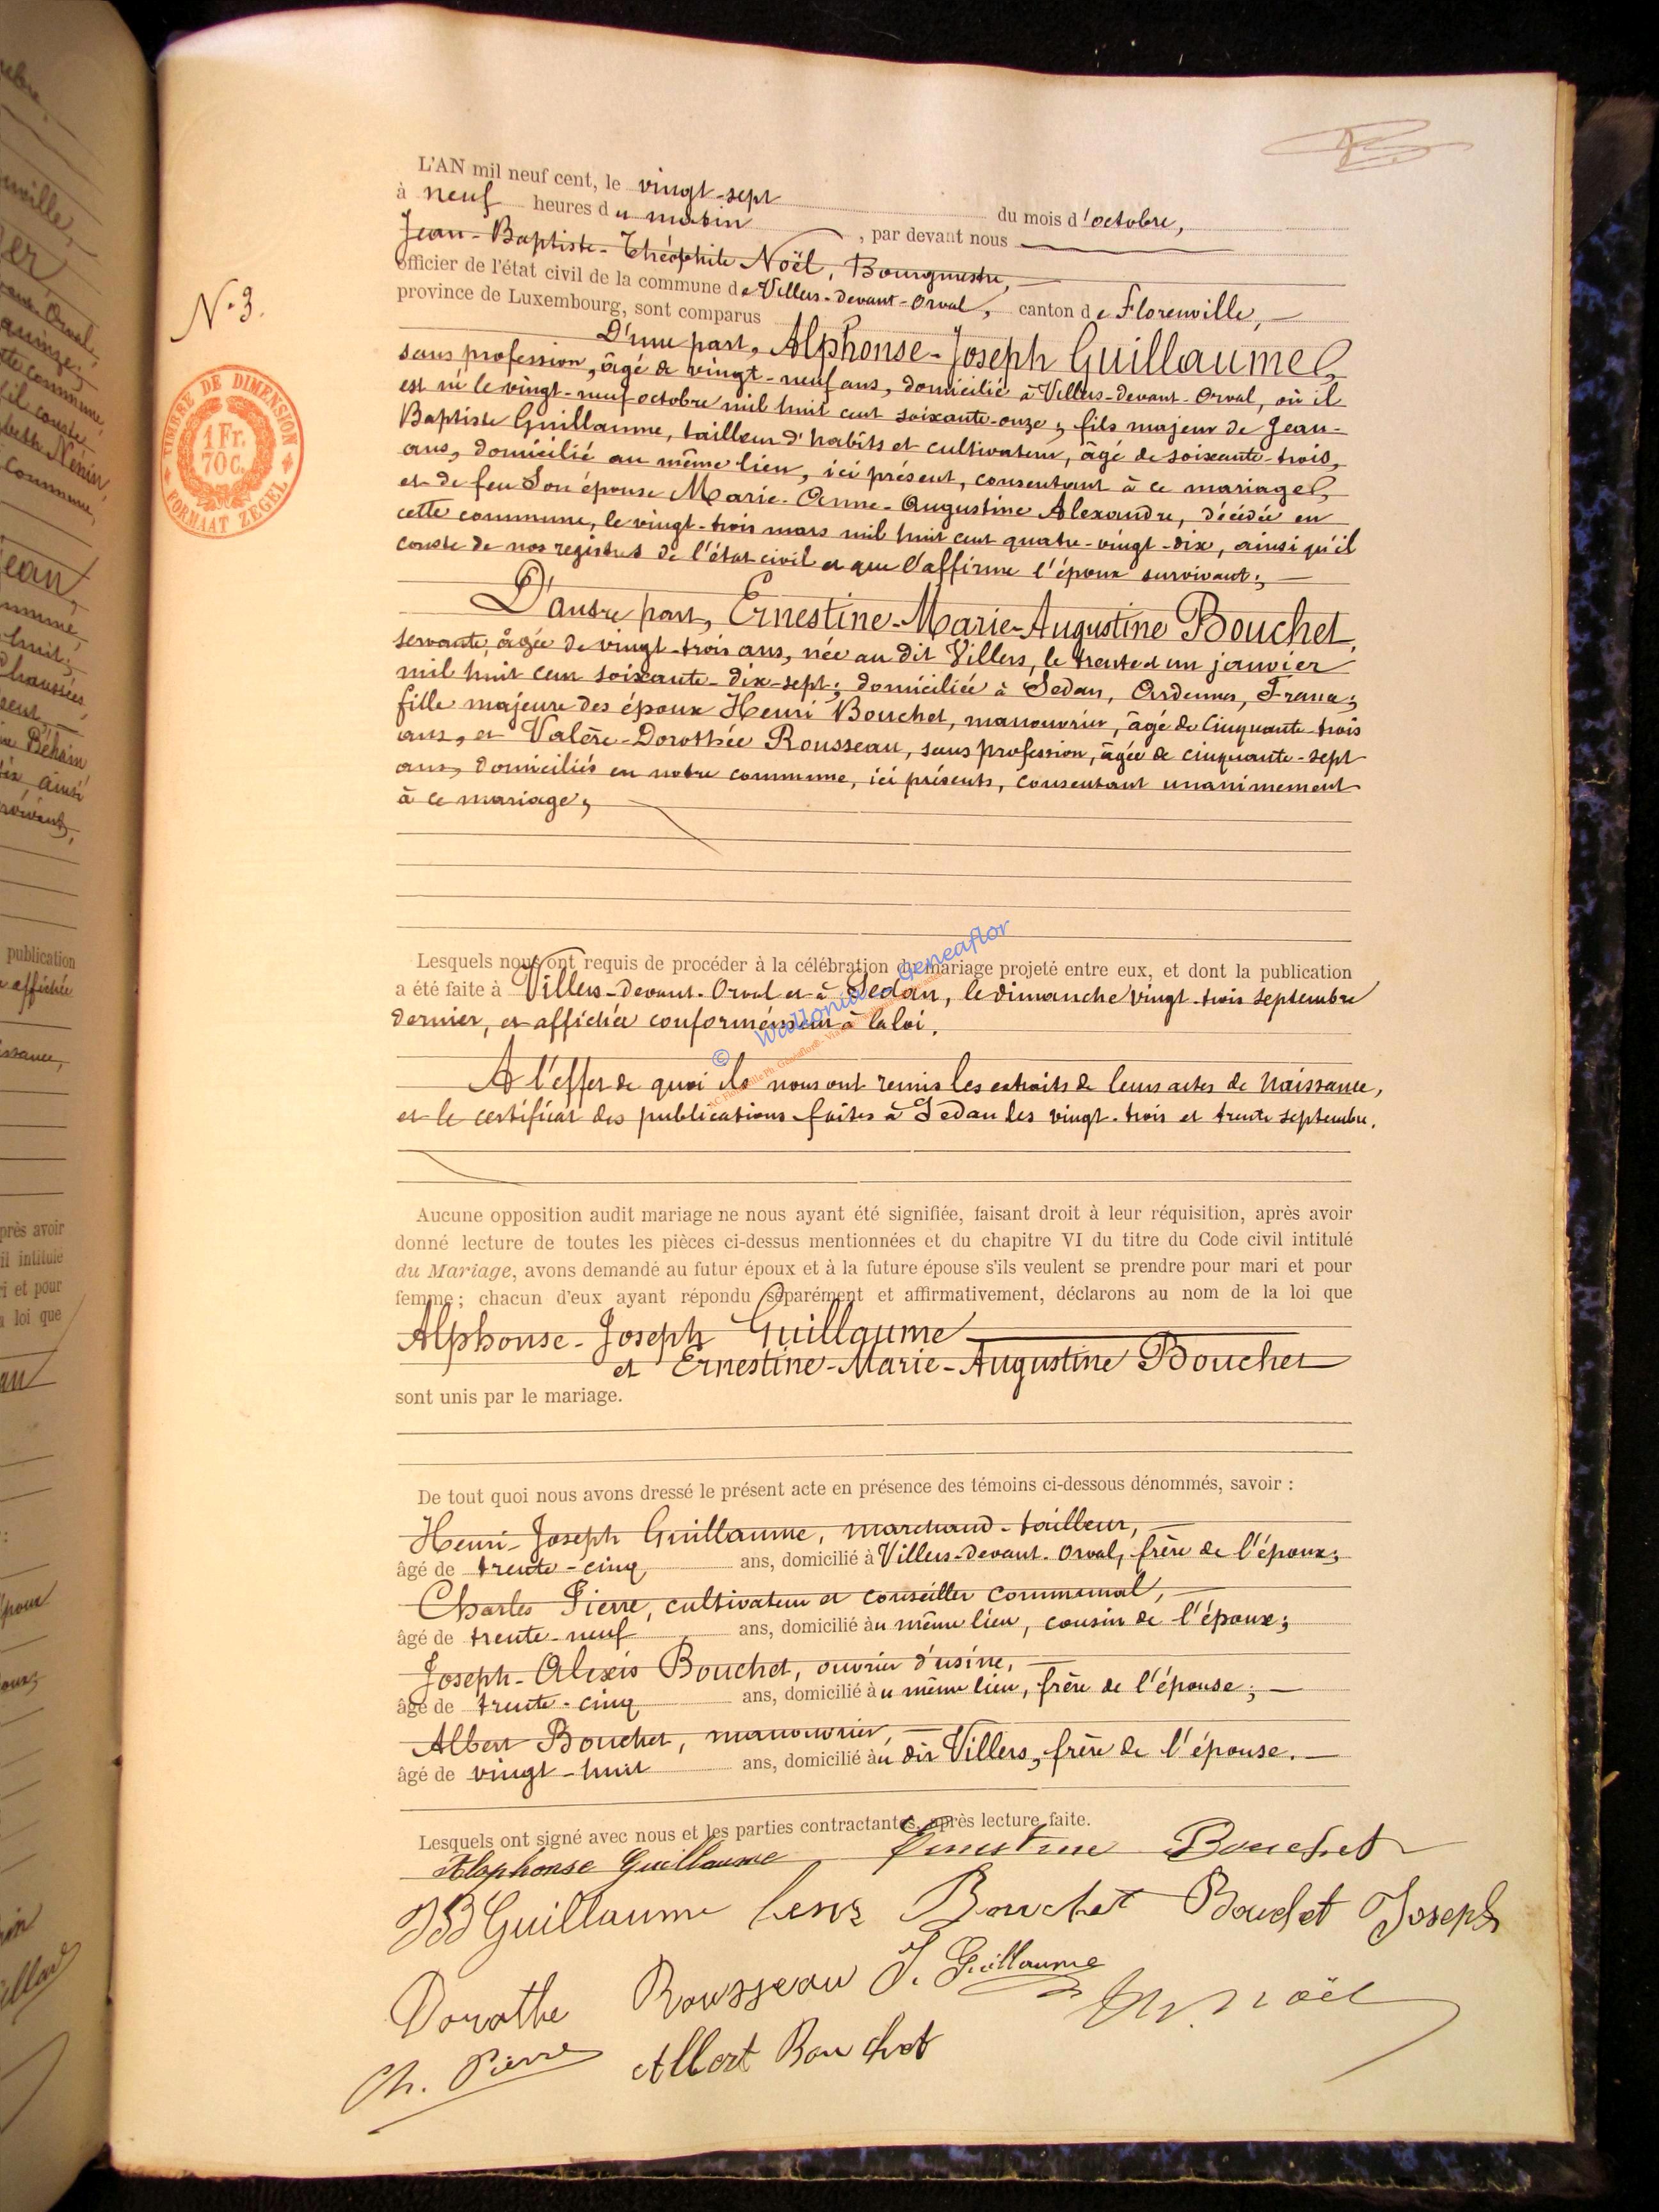 N. 3.
TIMBRE DE DIMENSION
1 Fr.
70 C.
FORMAAT ZEGEL
L'AN mil neuf cent, le vingt-sept du mois d'octobre,
à neuf heures du matin, par devant nous
Jean-Baptiste-Théophile Noël, Bourgmestre,
officier de l'état civil de la commune de Villers-devant-Orval, canton de Florenville,
province de Luxembourg, sont comparus
D'une part, Alphonse-Joseph Guillaume,
sans profession, âgé de vingt-neuf ans, domicilié à Villers-devant-Orval, où il
est né le vingt-neuf octobre mil huit cent soixante-onze; fils majeur de Jean-
Baptiste Guillaume, tailleur d'habits et cultivateur, âgé de soixante-trois,
ans, domicilié au même lieu, ici présent, consentant à ce mariage,
et de feu Son épouse Marie-Anne-Augustine Alexandre, décédée en
cette commune, le vingt-trois mars mil huit cent quatre-vingt-dix, ainsi qu'il
conste de nos registres de l'état civil et que l'affirme l'époux survivant;
D'autre part, Ernestine-Marie-Augustine Bouchet,
servante, âgée de vingt-trois ans, née au dit Villers, le trente et un janvier
mil huit cent soixante-dix-sept; domiciliée à Sedan, Ardennes, France;
fille majeure des époux Henri Bouchet, manouvrier, âgé de cinquante-trois
ans, et Valère-Dorothée Rousseau, sans profession, âgée de cinquante-sept
ans, domiciliés en notre commune, ici présents, consentant unanimement
à ce mariage;
Lesquels nous ont requis de procéder à la célébration du mariage projeté entre eux, et dont la publication
a été faite à Villers-devant-Orval et à Sedan, le dimanche vingt-trois septembre
dernier, et affichée conformément à la loi.
© Wallonia Geneaflor
A l'effet de quoi ils nous ont remis les extraits de leurs actes de naissance,
et le certificat des publications faites à Sedan les vingt-trois et trente septembre.
Aucune opposition audit mariage ne nous ayant été signifiée, faisant droit à leur réquisition, après avoir
donné lecture de toutes les pièces ci-dessus mentionnées et du chapitre VI du titre du Code civil intitulé
du Mariage, avons demandé au futur époux et à la future épouse s'ils veulent se prendre pour mari et pour
femme; chacun d'eux ayant répondu séparément et affirmativement, déclarons au nom de la loi que
Alphonse-Joseph Guillaume
et Ernestine-Marie-Augustine Bouchet
sont unis par le mariage.
De tout quoi nous avons dressé le présent acte en présence des témoins ci-dessous dénommés, savoir :
Henri-Joseph Guillaume, marchand-tailleur,
âgé de trente-cinq ans, domicilié à Villers-devant-Orval, frère de l'époux;
Charles Pierre, cultivateur et conseiller communal,
âgé de trente-neuf ans, domicilié au même lieu, cousin de l'époux;
Joseph-Alexis Bouchet, ouvrier d'usine,
âgé de trente-cinq ans, domicilié au même lieu, frère de l'épouse;
Albert Bouchet, manouvrier,
âgé de vingt-huit ans, domicilié au dit Villers, frère de l'épouse.
Lesquels ont signé avec nous et les parties contractantes, après lecture faite.
Alphonse Guillaume Ernestine Bouchet
JB Guillaume Bouchet Bouchet Joseph
Dorothe Rousseau J. Guillaume Th. Noël
Ch. Pierre Albert Bouchet